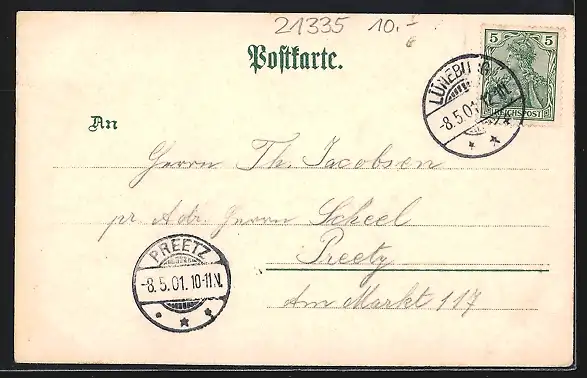 21335 10.-
Postkarte.
5 5
REICHSPOST
LÜNEBURG
-8.5.01. 12-1N.
An
Herrn Th. Jacobsen
pr. Adr. Herrn Scheel
Preetz
Am Markt 117
PREETZ
-8.5.01. 10-11N.